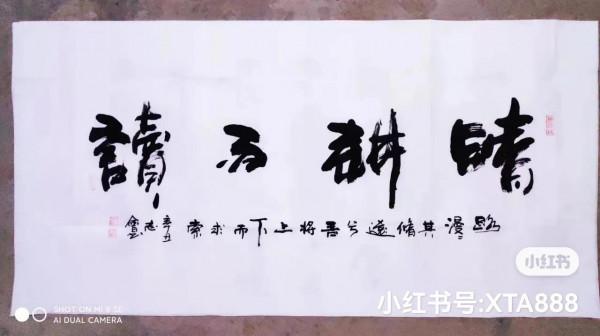 晴耕雨讀
路漫々其脩遠兮吾將上下而求索
辛丑
小红书
小红书号:XTA888
SHOT ON MI 8 SE
AI DUAL CAMERA